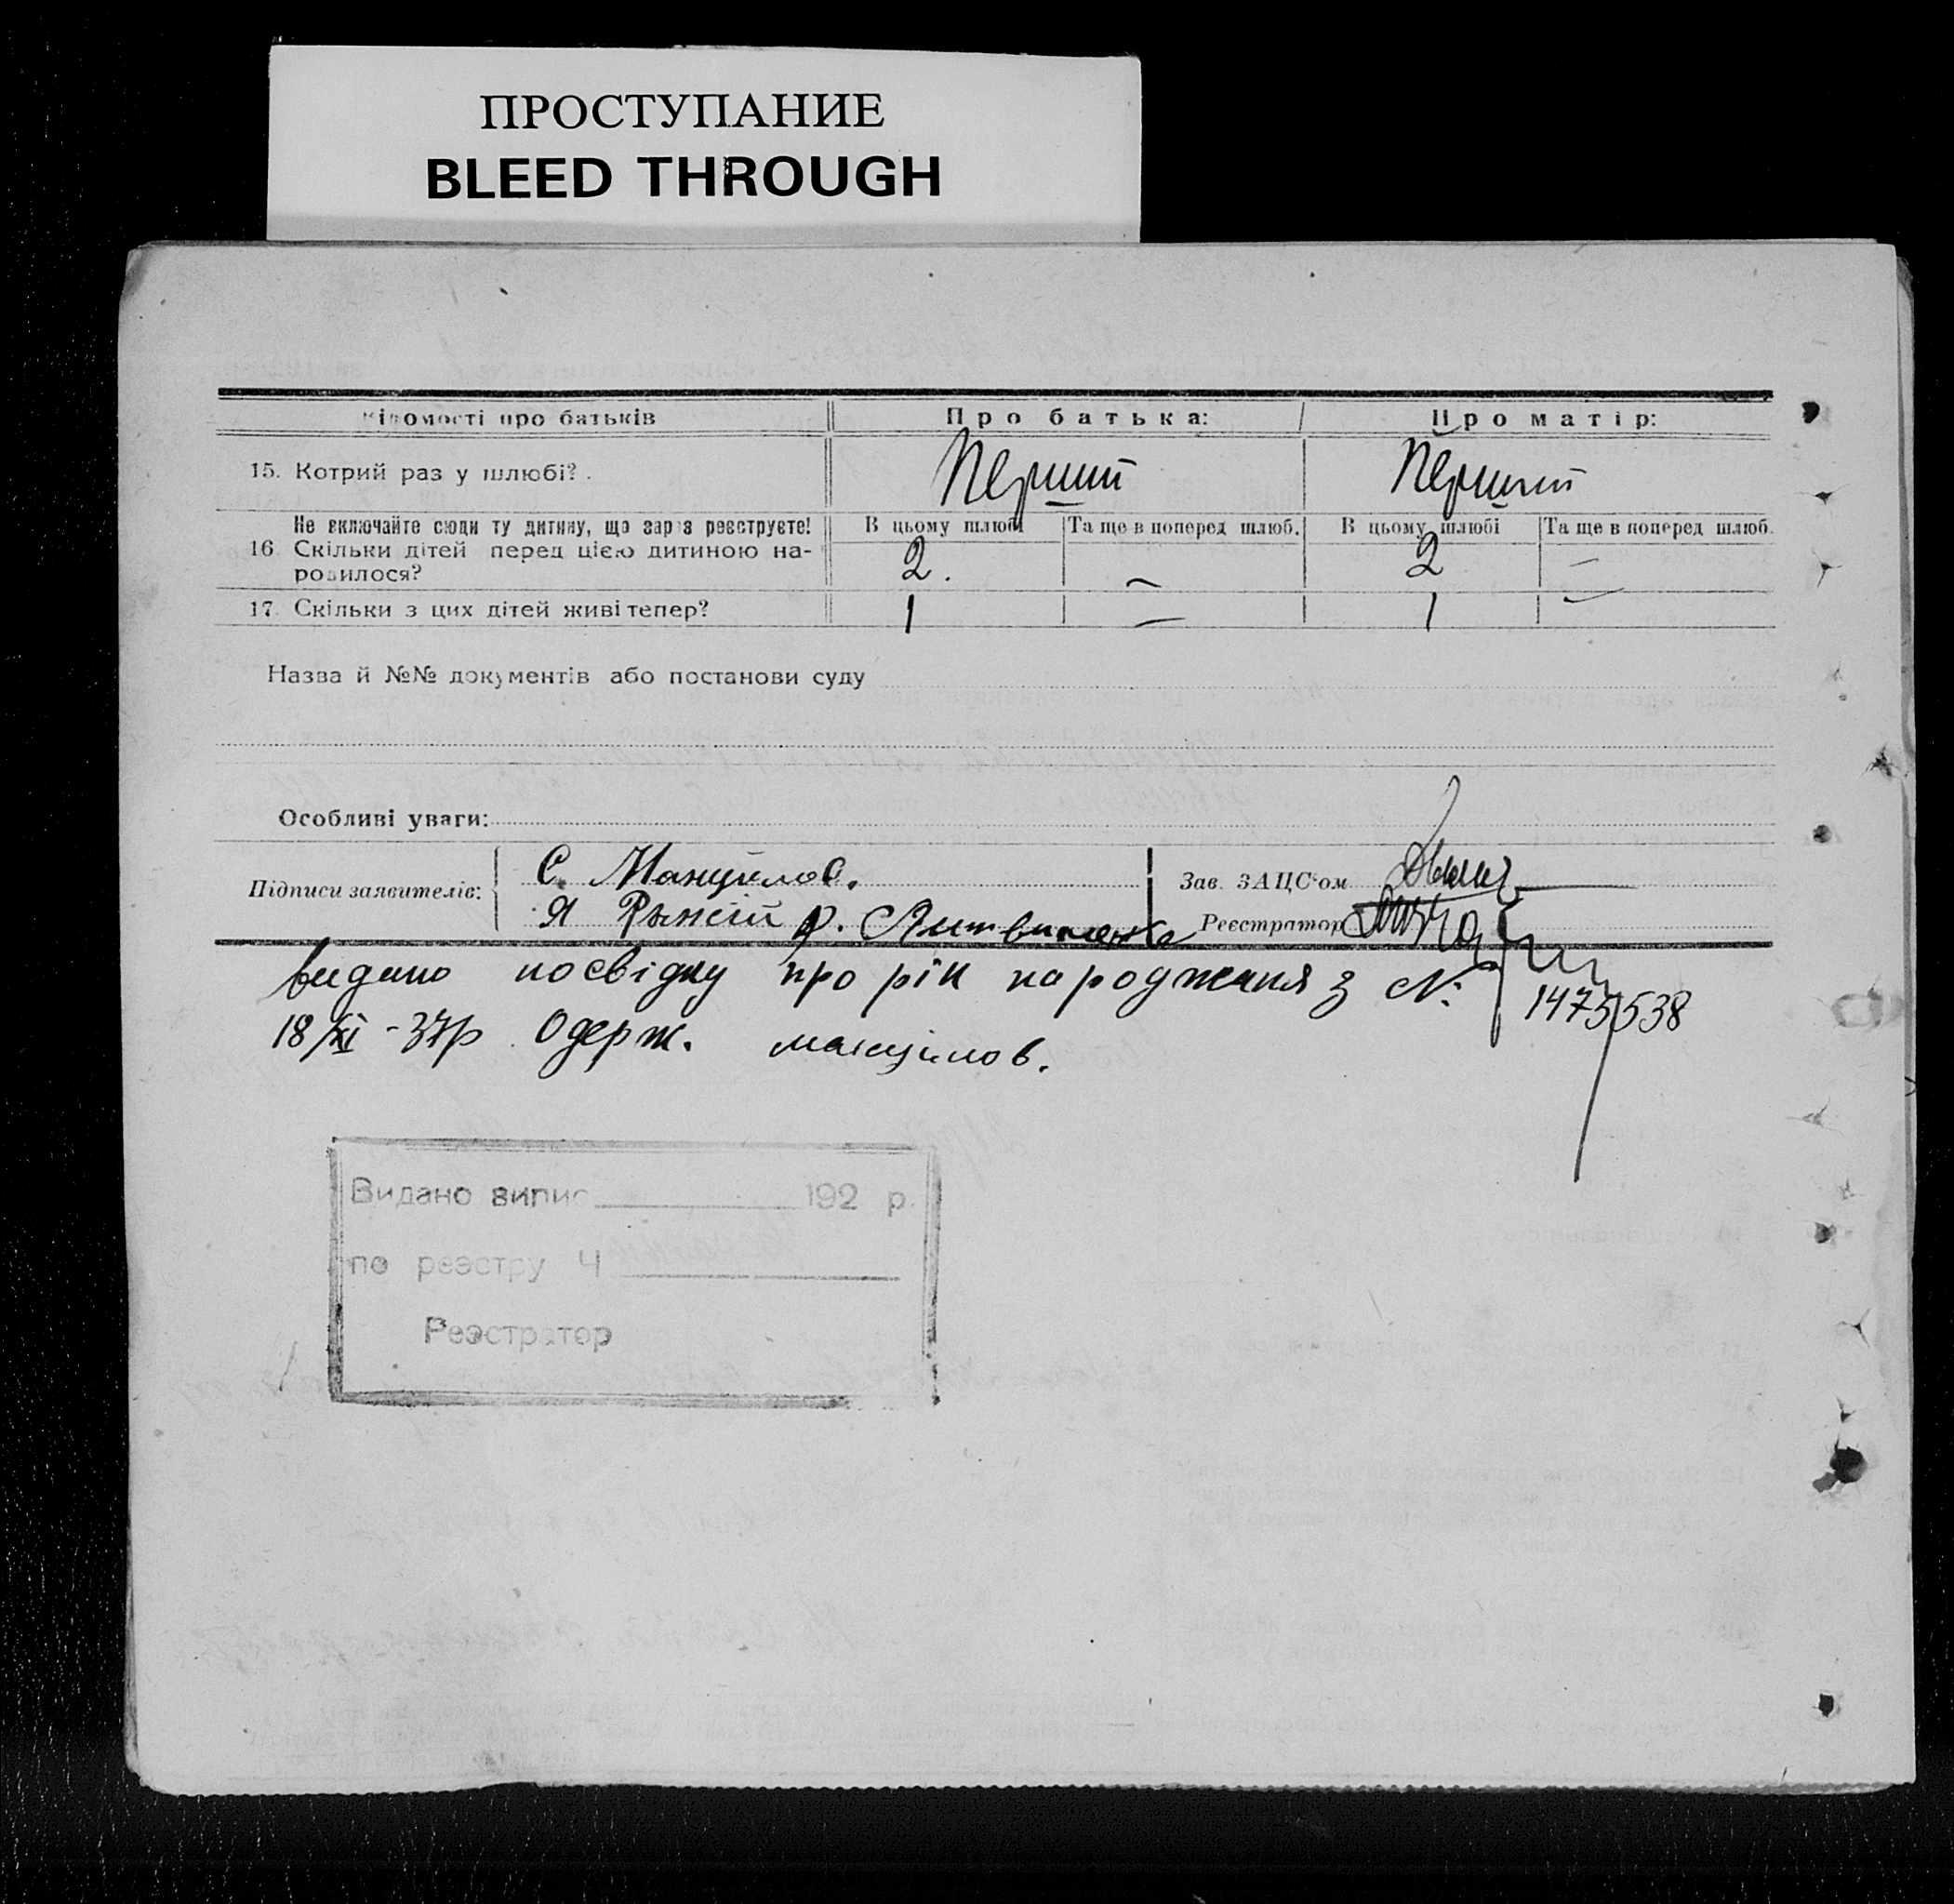 ПРОСТУПАНИЕ
BLEED THROUGH
Відомості про батьків Про батька: Про матір:
15. Котрий раз у шлюбі? Перший Перший
Не включайте сюди ту дитину, що зараз реєструєте! В цьому шлюбі Та ще в поперед шлюб. В цьому шлюбі Та ще в поперед шлюб.
16. Скільки дітей перед цією дитиною на-
родилося? 2. — 2 —
17. Скільки з цих дітей живі тепер? 1 — 1 —
Назва й №№ документів або постанови суду
Особливі уваги:
Підписи заявителів: С. Мануйлов. Зав. ЗАЦС'ом
Я Р. Литвиненко Реєстратор
видано посвідку про рік народження з №: 1475538
18/XI -37р Одерж. мануилов.
Видано випис 192 р.
по реєстру Ч
Реєстратор